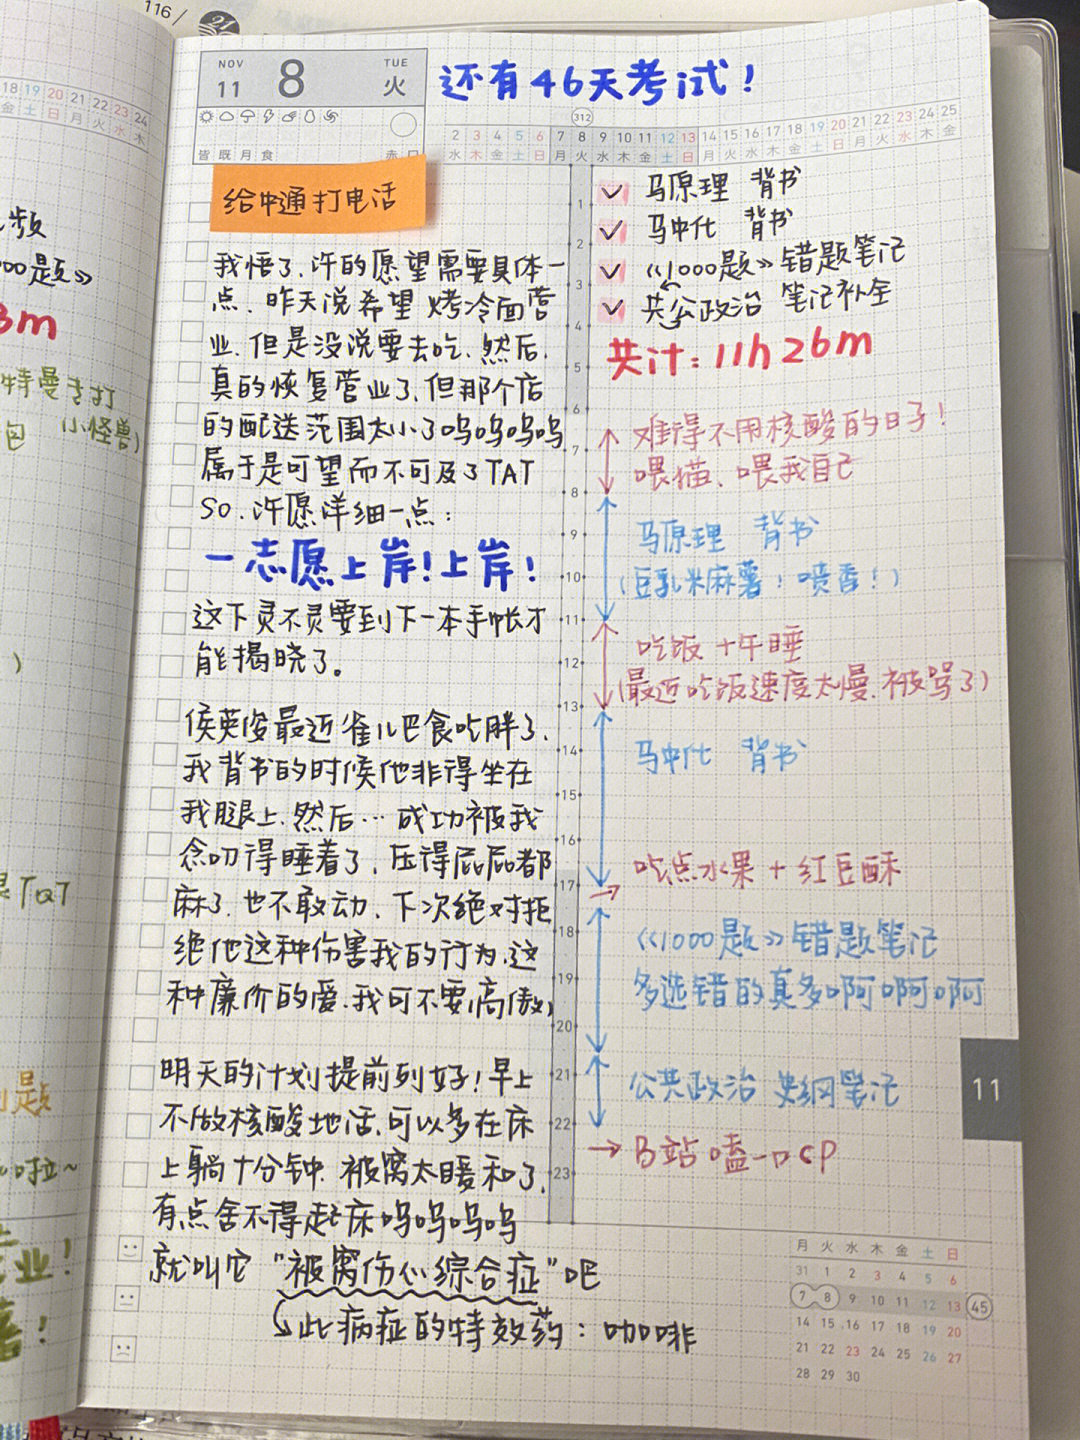 116/
21
18 19 20 21 22 23 24
金 土 日 月 火 水 木
频
000题》
3m
特曼专打
包 小怪兽)
)
TaT
题
啦~
业!
!
NOV
TUE
11 8 火
皆既月食
还有46天考试!
312
2 3 4 5 6 7 8 9 10 11 12 13 14 15 16 17 18 19 20 21 22 23 24 25
水 木 金 土 日 月 火 水 木 金 土 日 月 火 水 木 金 土 日 月 火 水 木 金
给中通打电话
我悟了,许的愿望需要具体一
点、昨天说希望 烤冷面营
业,但是没说要去吃,然后,
真的恢复营业了,但那个店
的配送范围太小了呜呜呜呜
属于是可望而不可及了TAT
SO.许愿详细一点:
一志愿上岸!上岸!
这下灵不灵要到下一本手帐才
能揭晓了。
侯英俊最近雀儿巴食吃胖了,
我背书的时候他非得坐在
我腿上,然后…成功被我
念叨得睡着了,压得屁屁都
麻了,也不敢动,下次绝对拒
绝他这种伤害我的行为,这
种廉价的爱,我可不要(高傲)
明天的计划提前列好!早上
不做核酸地话,可以多在床
上躺十分钟.被窝太暖和了,
有点舍不得起床呜呜呜呜
就叫它“被窝伤心综合症”吧
此病症的特效药:咖啡
马原理 背书
马中化 背书
《1000题》错题笔记
共公政治 笔记补全
共计:11h26m
1
2
3
4
5
6
7
8
9
10
11
12
13
14
15
16
17
18
19
20
21
22
23
难得不用核酸的日子!
喂猫、喂我自己
马原理 背书
(豆乳米麻薯!喷香!)
吃饭+午睡
(最近吃饭速度太慢,被骂了)
马中化 背书
吃点水果+红豆酥
《1000题》错题笔记
多选错的真多啊啊啊
公共政治 史纲笔记
B站嗑一口CP
11
月 火 水 木 金 土 日
31 1 2 3 4 5 6
7 8 9 10 11 12 13 45
14 15 16 17 18 19 20
21 22 23 24 25 26 27
28 29 30